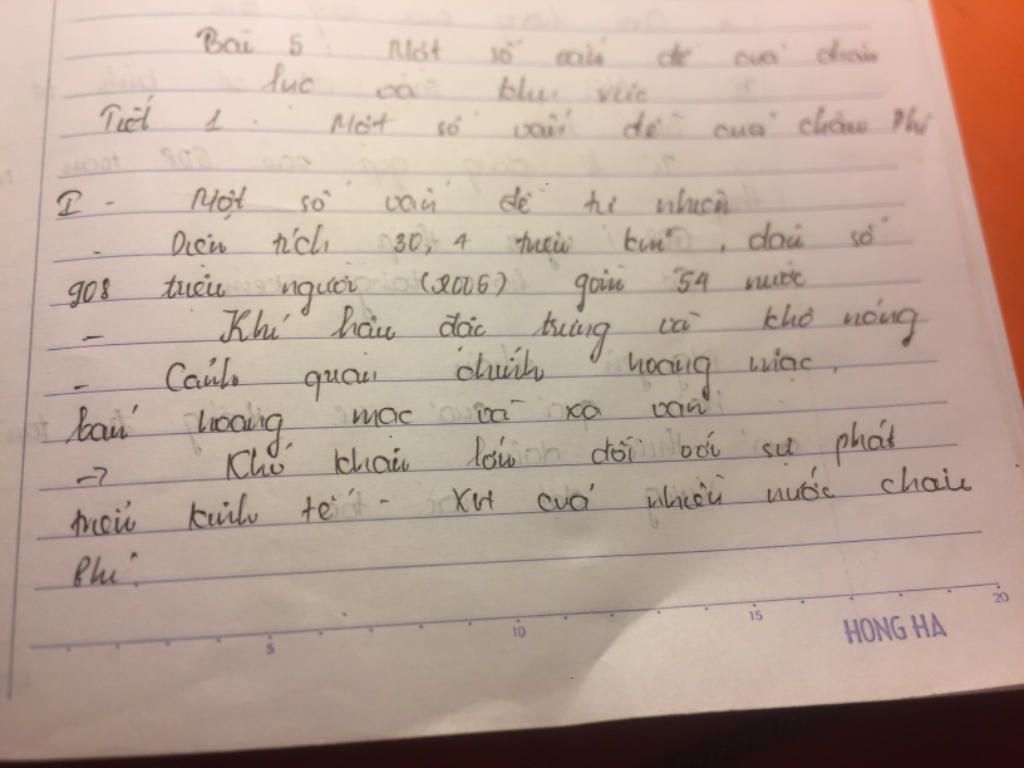 Bài 5: Một số vấn đề của châu
lục và khu vực
Tiết 1. Một số vấn đề của châu Phi
I - Một số vấn đề tự nhiên
- Diện tích 30,4 triệu km², dân số
908 triệu người (2005) gồm 54 nước
- Khí hậu đặc trưng và khô nóng
- Cảnh quan chính hoang mạc,
bán hoang mạc và xa van
-> Khó khăn lớn đối với sự phát
triển kinh tế - XH của nhiều nước châu
Phi.
5 10 15 20
HONG HA